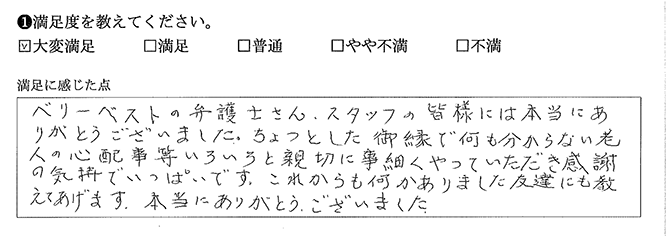 ❶満足度を教えてください。
☑大変満足 □満足 □普通 □やや不満 □不満
満足に感じた点
ベリーベストの弁護士さん、スタッフの皆様には本当にあ
りがとうございました。ちょっとした御縁で何も分からない老
人の心配事等いろいろと親切に事細くやっていただき感謝
の気持でいっぱいです。これからも何かありました友達にも教
えてあげます。本当にありがとうございました